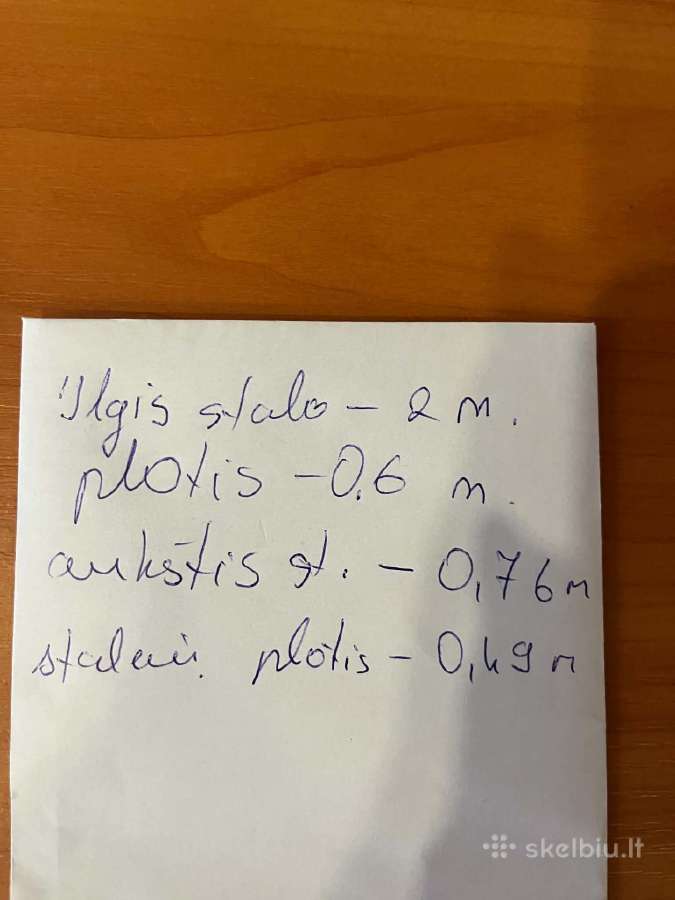 Ilgis stalo - 2 m.
plotis - 0.6 m.
aukštis st. - 0,76 m
plotis - 0,49 m
skelbiu.lt